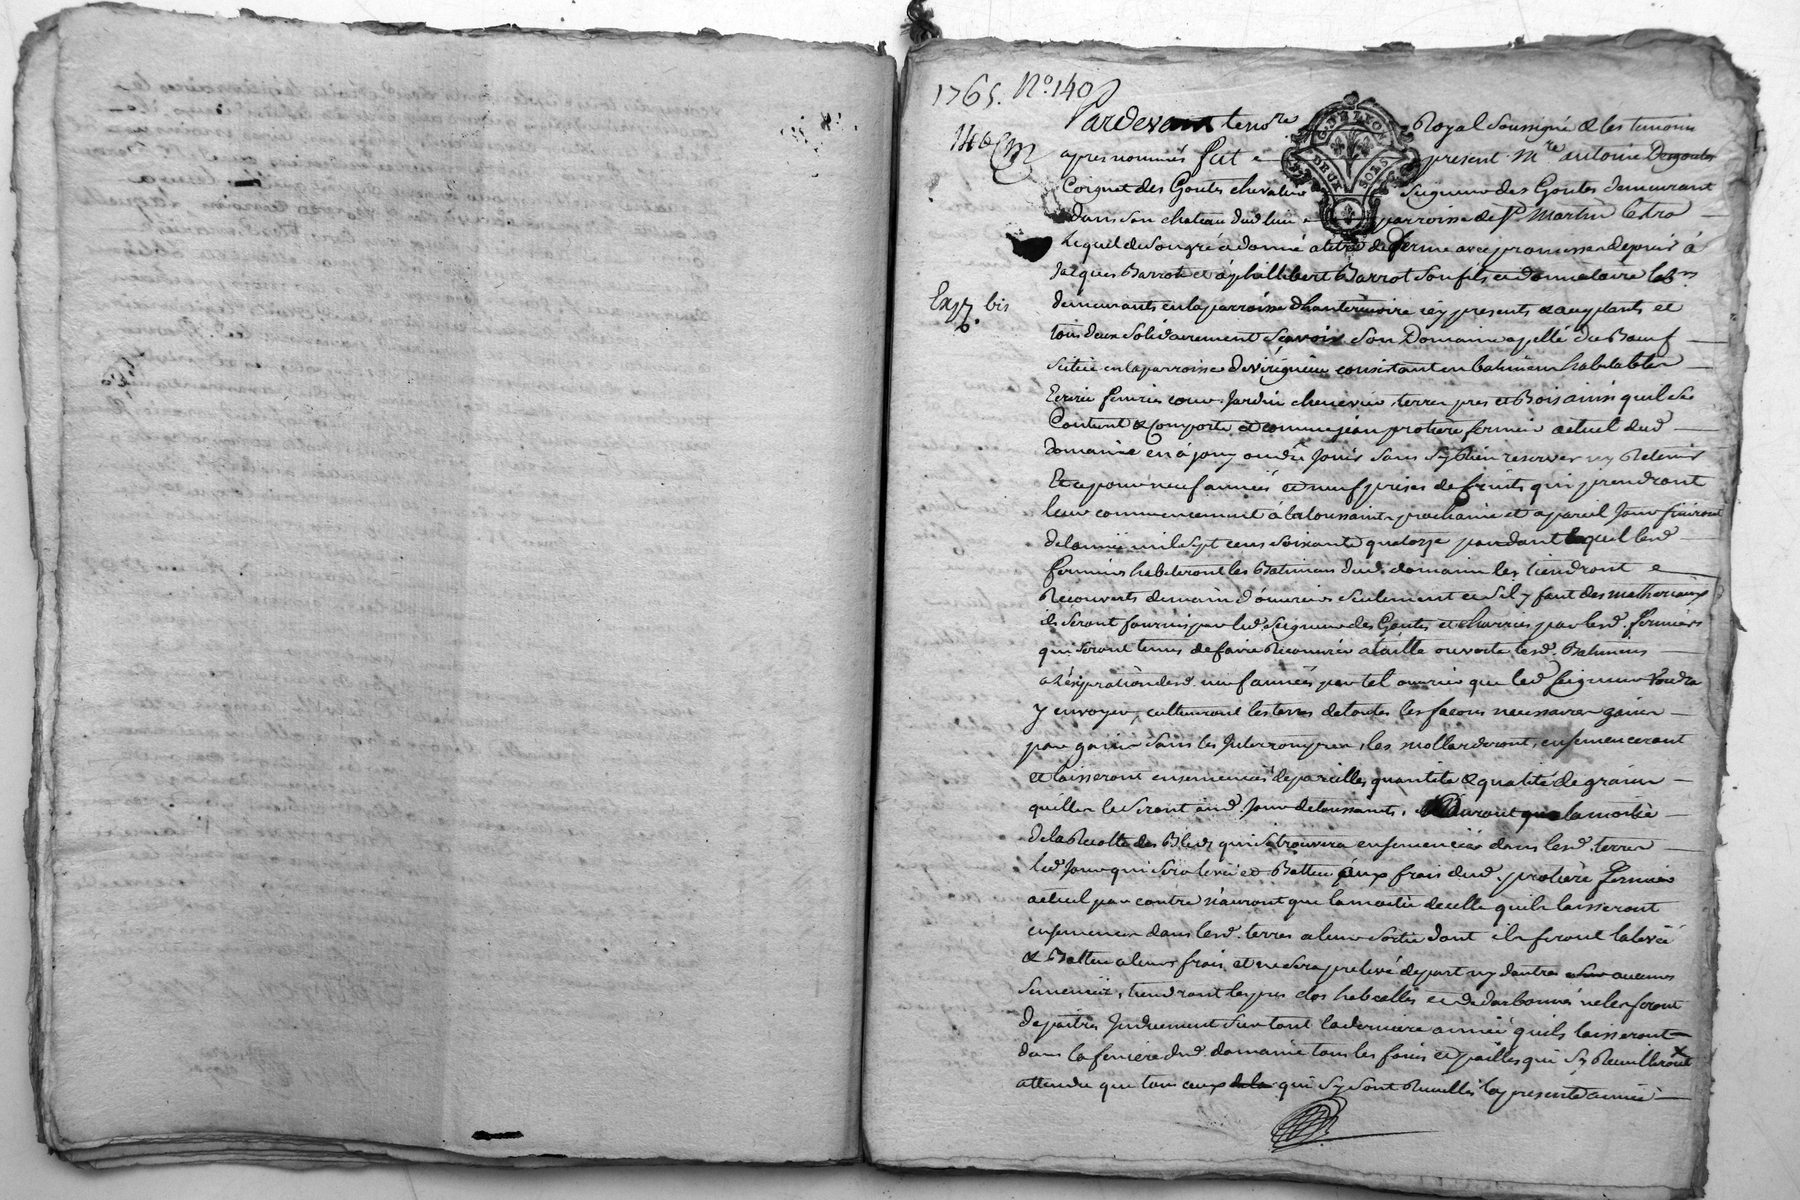 1765. N.º 140
Pardevant le no.re Royal soussigné & les temoins
146
apres nommés fut present m.re antoine Dugoutes
Coignet des Goutes chevalier Seigneur des Goutes demeurant
G. DE LYON
DEUX SOLS
dans son chateau dud lieu parroisse de S.t Martin Lestra
Lequel de son gré a donné a titre de ferme avec promesse
Jacques Barrot et à philibert Barrot son fils et donnataire
Exp. bis
demeurants en la parroisse d'hauterivoire icy presents & acceptants et
tous deux solidairement sçavoir son Domaine appellé du Boeuf
scitué en la parroisse de virigneu consistant en batimens habitables
Ecurie feniere cour Jardin cheneviere terres prés et Bois ainsi quil se
Contient & Comporte et comme jean protiere fermier actuel dud
domaine en à jouy ou dû Jouir sans sy Rien reserver ny Retenir
Et ce pour neuf années et neuf prises de fruits qui prendront
leur commencement à la toussaints prochaine et a pareil Jour finiront
de lannée mil sept cens soixante quatorze pendant lequel lesd
fermiers habiteront les Batimens dud. domaine les tiendront
Recouverts de main d'ouvriers seulement et sil y faut des matheriaux
ils seront fournis par led. Seigneur des Goutes et charriés par lesd. fermiers
qui seront tenus de faire Recouvrir a taille ouverte lesd. Batimens
a léxpiration desd. neuf années par tel ouvrier que led Seigneur voudra
y envoyer, cultiveront les terres de toutes les façons necessaires
sans les Interrompre, les ensemenceront
et laisseront ensemencés de pareilles quantité & qualité de grains
quelles le seront aud. Jour de toussaints, nauront que la moitié
de la Recolte des Bleds qui se trouvera ensemencée dans lesd. terres
led Jour qui sera levée et Battue aux frais dud. protiere fermier
actuel par contre n'auront que la moitié de celle quils laisseront
ensemencée dans lesd. terres a leur sortie dont ils feront la levée
& Battue a leurs frais et ne sera prelevé de part ny dautre aucunes
semences, tiendront les prés clos et ne les feront
depaitre Induement surtout la derniere année quils laisseront
dans la feniere dud. domaine tous les foins et pailles qui sy Recuilliront x
attendu que tous ceux qui sy sont Recuillis la presente année